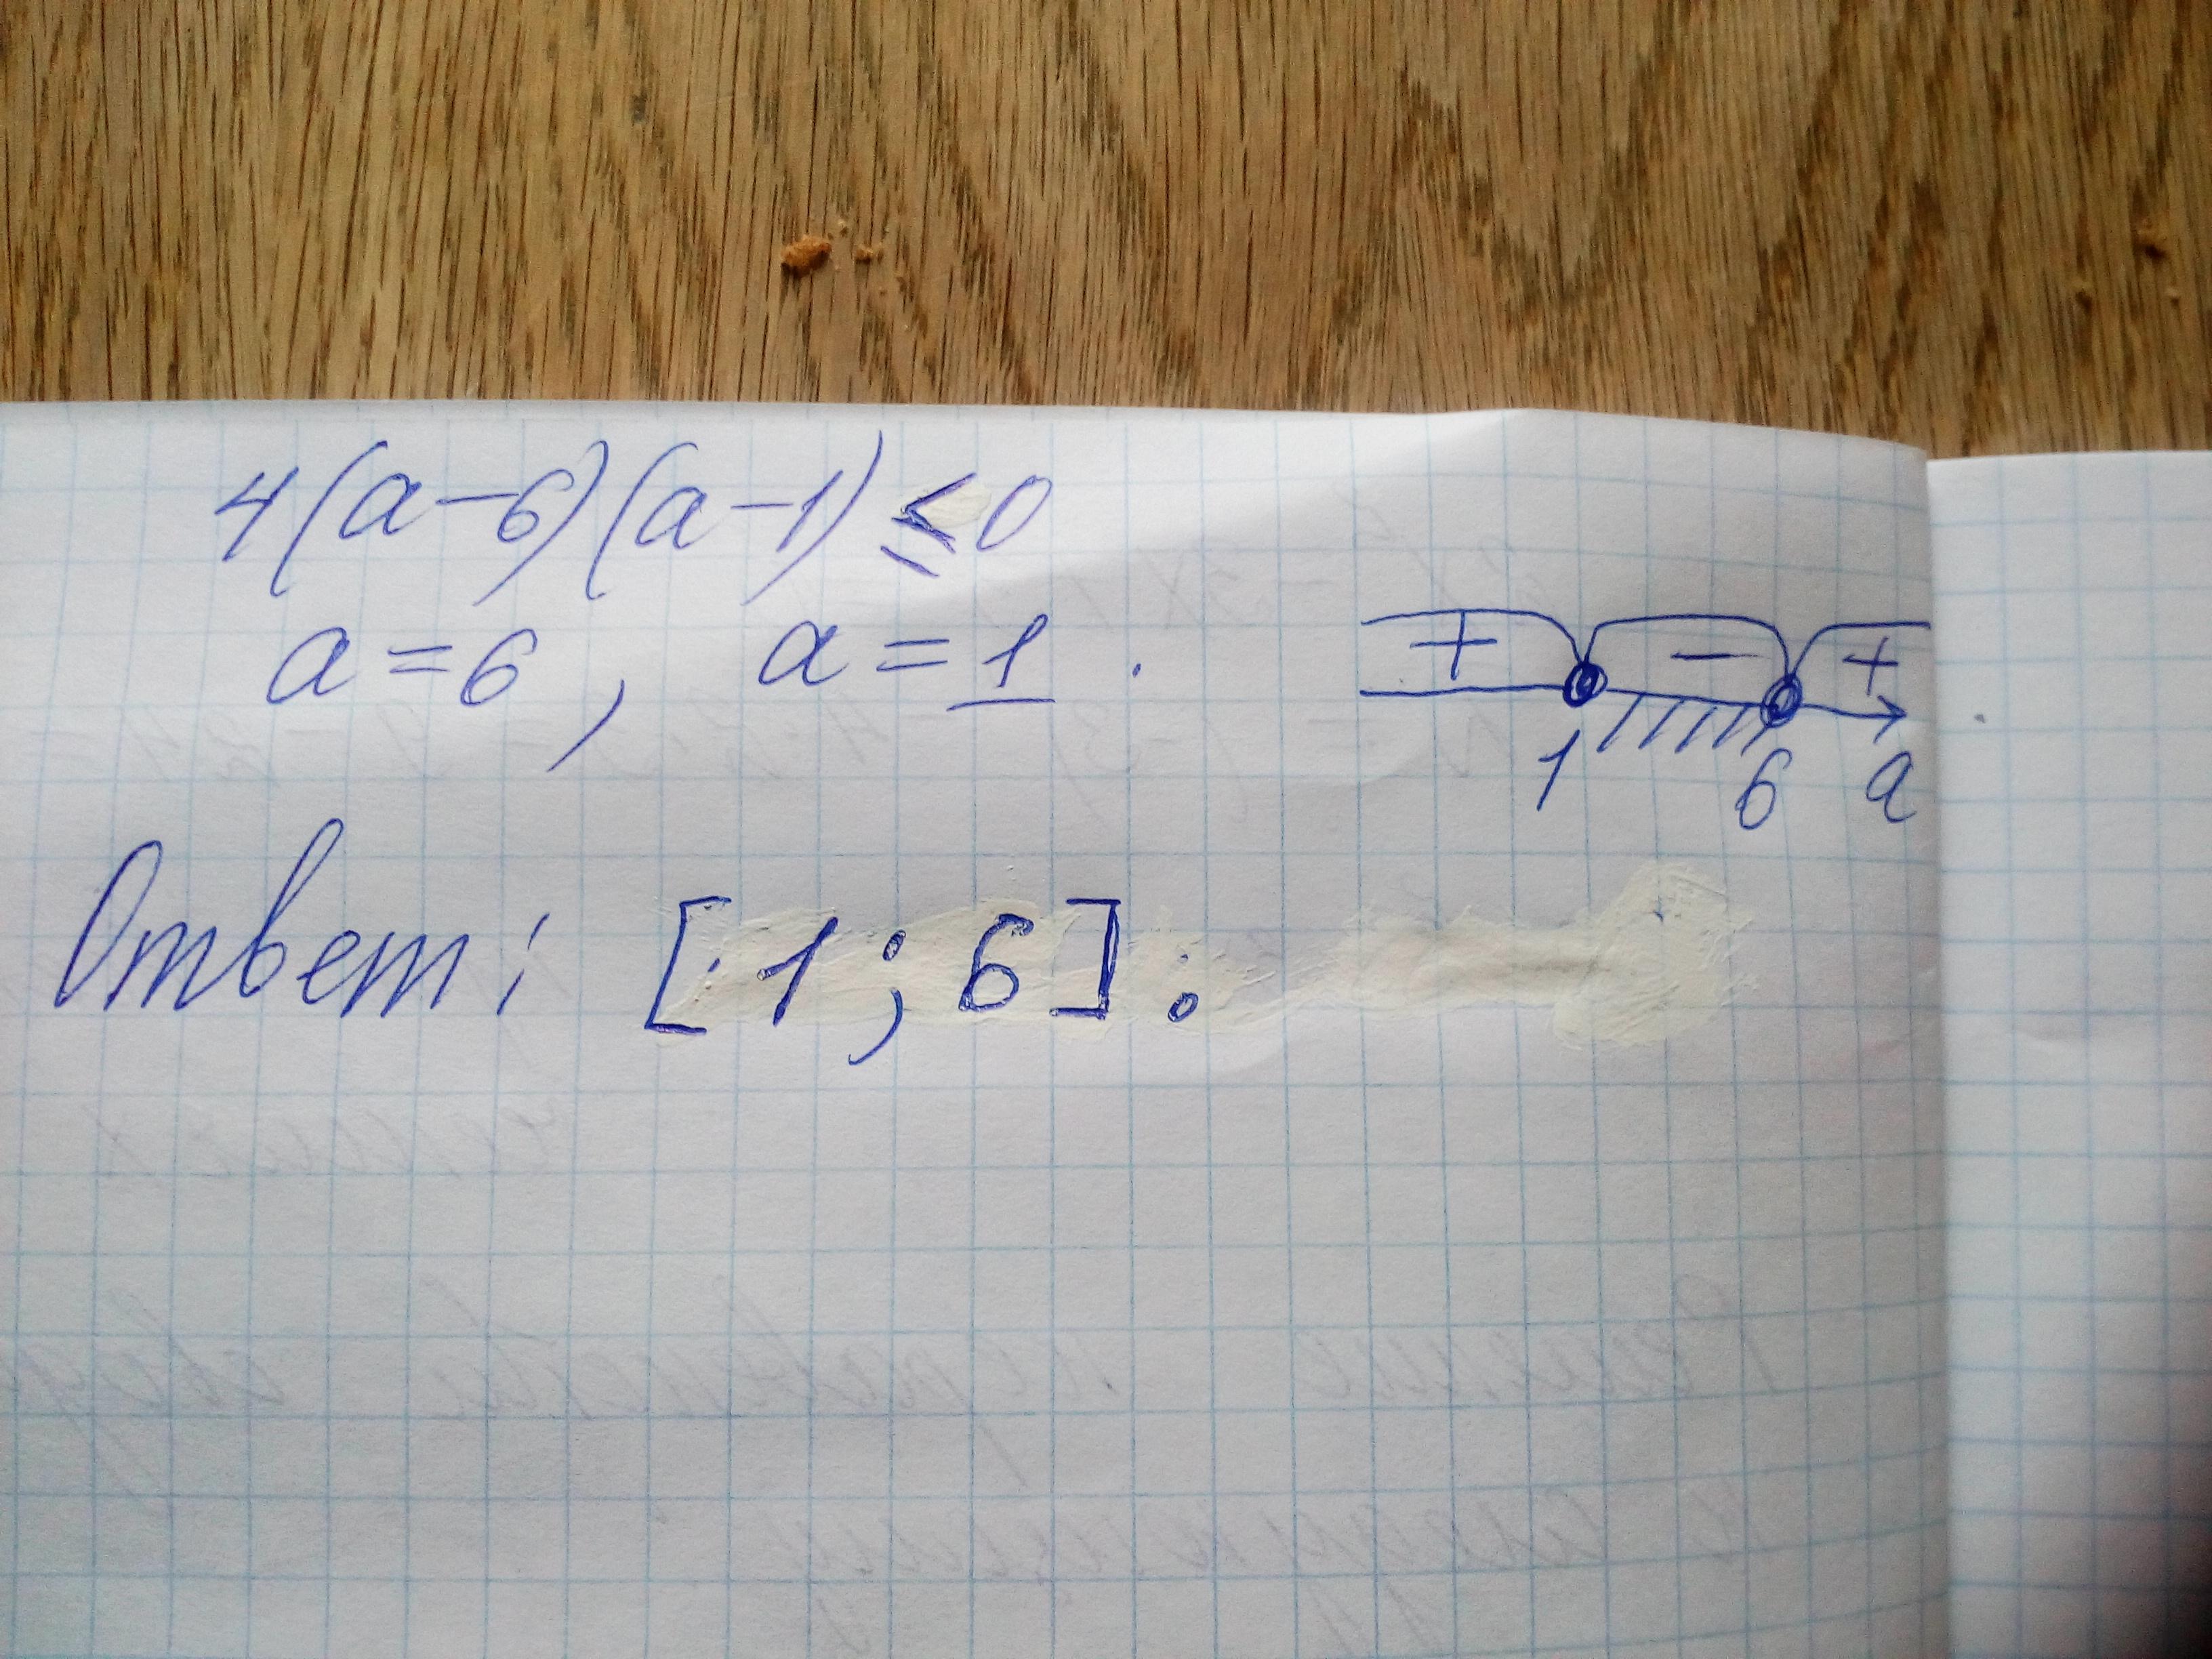 4(a-6)(a-1) ≤ 0
a = 6, a = 1.
+ - +
1 6 a
Ответ: [1; 6].